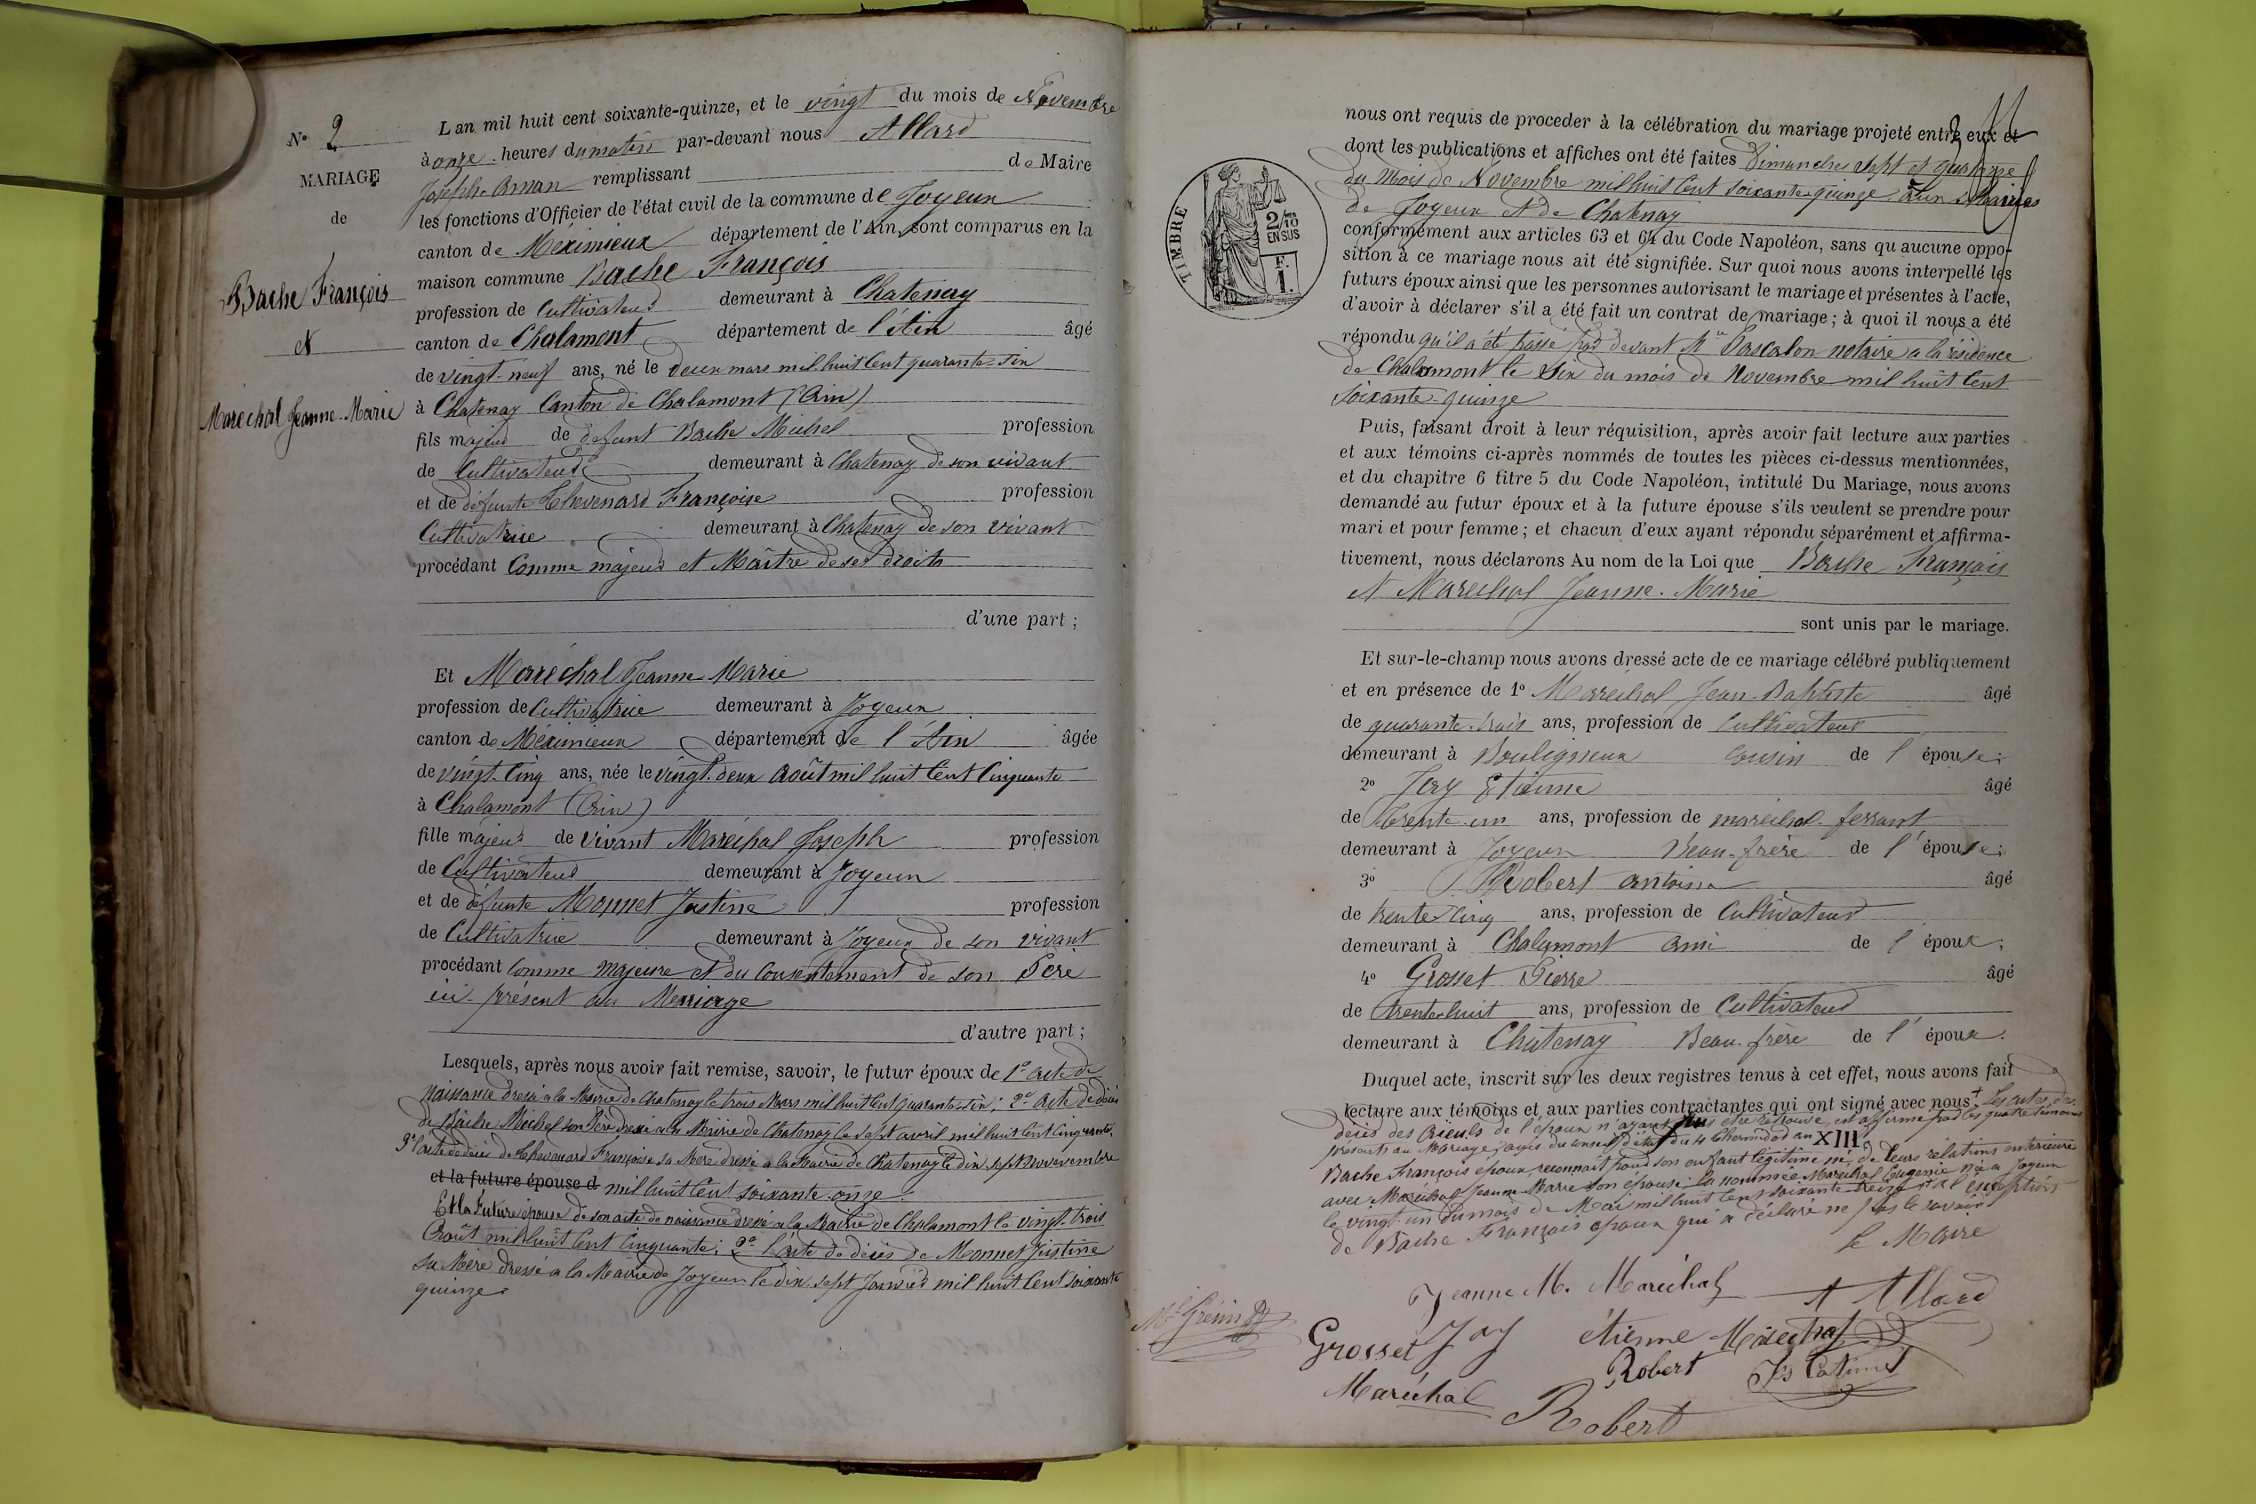 N° 2
MARIAGE
de
Bache François
et
Maréchal Jeanne-Marie
L'an mil huit cent soixante-quinze, et le vingt du mois de Novembre
à onze heures du matin par-devant nous Allard
Joseph-Aman remplissant de Maire
les fonctions d'Officier de l'état civil de la commune de Joyeux
canton de Méximieux département de l'Ain, sont comparus en la
maison commune Bache François
profession de Cultivateur demeurant à Chatenay
canton de Chalamont département de l'Ain âgé
de vingt-neuf ans, né le deux mars mil huit cent quarante-six
à Chatenay Canton de Chalamont (Ain)
fils majeur de défunt Bache Michel profession
de Cultivateur demeurant à Chatenay de son vivant
et de défunte Thevenard Françoise profession
Cultivatrice demeurant à Chatenay de son vivant
procédant Comme majeur et Maître de ses droits
d'une part ;
Et Maréchal Jeanne Marie
profession de Cultivatrice demeurant à Joyeux
canton de Méximieux département de l'Ain âgée
de vingt-cinq ans, née le vingt-deux Août mil huit cent cinquante
à Chalamont (Ain)
fille majeure de vivant Maréchal Joseph profession
de Cultivateur demeurant à Joyeux
et de défunte Monnet Justine profession
de Cultivatrice demeurant à Joyeux de son vivant
procédant comme majeure et du consentement de son Père
ici présent au Marriage
d'autre part ;
Lesquels, après nous avoir fait remise, savoir, le futur époux de 1° acte de
Naissance dressé a la Mairie de Chatenay le trois Mars mil huit cent quarante-six ; 2° acte de décès
de Bache Michel son Père dressé a la Mairie de Chatenay le sept avril mil huit cent cinquante,
3° l'acte de décès de Thevenard Françoise sa Mère dressé a la Mairie de Chatenay le dix sept Novembre
et la future épouse d mil huit cent soixante-onze.
Et la Future épouse de son acte de naissance dressé a la Mairie de Chalamont le vingt-trois
Août mil huit cent cinquante ; 2° l'acte de décès de Monnet Justine
sa Mère dressé a la Mairie de Joyeux le dix sept Janvier mil huit cent soixante
quinze.
TIMBRE
2/10
EN SUS
F.
1.
nous ont requis de proceder à la célébration du mariage projeté entre eux et
dont les publications et affiches ont été faites Dimanches sept et quatorze
du Mois de Novembre mil huit cent soixante-quinze aux Mairies
de Joyeux et de Chatenay
conformément aux articles 63 et 64 du Code Napoléon, sans qu'aucune oppo-
sition à ce mariage nous ait été signifiée. Sur quoi nous avons interpellé les
futurs époux ainsi que les personnes autorisant le mariage et présentes à l'acte,
d'avoir à déclarer s'il a été fait un contrat de mariage ; à quoi il nous a été
répondu qu'il a été passé par devant Me Pascalon notaire a la résidence
de Chalamont le Six du mois de Novembre mil huit cent
soixante-quinze
Puis, faisant droit à leur réquisition, après avoir fait lecture aux parties
et aux témoins ci-après nommés de toutes les pièces ci-dessus mentionnées,
et du chapitre 6 titre 5 du Code Napoléon, intitulé Du Mariage, nous avons
demandé au futur époux et à la future épouse s'ils veulent se prendre pour
mari et pour femme ; et chacun d'eux ayant répondu séparément et affirma-
tivement, nous déclarons Au nom de la Loi que Bache François
et Maréchal Jeanne-Marie
sont unis par le mariage.
Et sur-le-champ nous avons dressé acte de ce mariage célébré publiquement
et en présence de 1° Maréchal Jean-Baptiste âgé
de quarante-trois ans, profession de Cultivateur
demeurant à Bouligneux cousin de l'épouse ;
2° Joy Etienne âgé
de trente-un ans, profession de maréchal-ferrant
demeurant à Joyeux Beau-frère de l'épouse ;
3° Robert antoine âgé
de trente-cinq ans, profession de Cultivateur
demeurant à Chalamont ami de l'époux ;
4° Grosset Pierre âgé
de trente-huit ans, profession de Cultivateur
demeurant à Chatenay Beau-frère de l'époux.
Duquel acte, inscrit sur les deux registres tenus à cet effet, nous avons fait
lecture aux témoins et aux parties contractantes qui ont signé avec nous + Les actes de
décès des Aïeuls de l'époux n'ayant pu être retrouvé, est affirmé par les quatre témoins
présents au Mariage, l'avis du conseil d'état du 4 thermidor an XIII
Bache François époux reconnaît pour son enfant légitime né de leurs relations antérieure
avec Maréchal Jeanne Marie son épouse : la nommée Maréchal Eugenie née a Joyeux
le vingt-un du mois de Mai mil huit cent soixante-treize et a l'exception
de Bache François époux qui a déclaré ne pas le savoir
le Maire
Jeanne M. Maréchal
A Allard
Grosset Joy étienne Maréchal
Robert
Maréchal
Robert